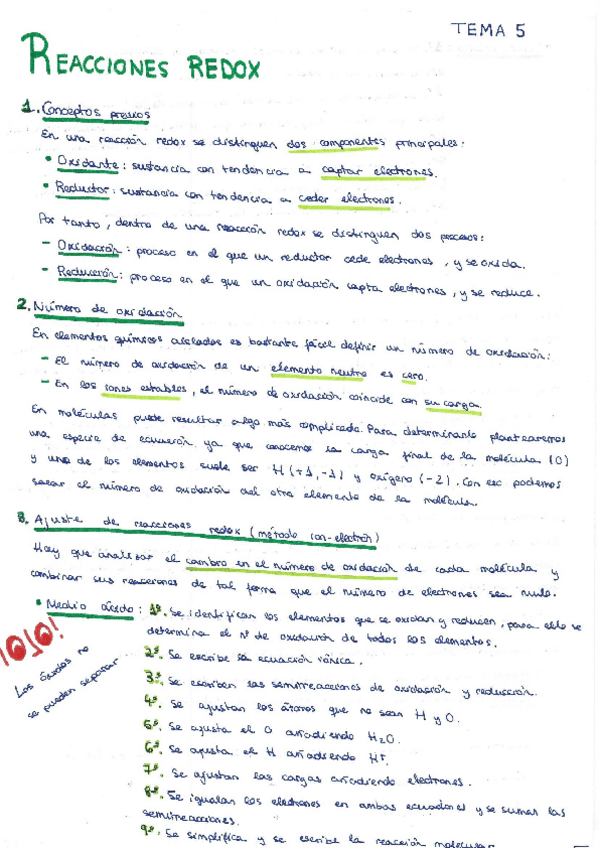 TEMA 5
REACCIONES REDOX
1. Conceptos previos
En una reacción redox se distinguen dos componentes principales:
• Oxidante: sustancia con tendencia a captar electrones.
• Reductor: sustancia con tendencia a ceder electrones.
Por tanto, dentro de una reacción redox se distinguen dos procesos:
- Oxidación: proceso en el que un reductor cede electrones, y se oxida.
- Reducción: proceso en el que un oxidación capta electrones, y se reduce.
2. Número de oxidación
En elementos químicos aislados es bastante fácil definir un número de oxidación:
- El número de oxidación de un elemento neutro es cero.
- En los iones estables, el número de oxidación coincide con su carga.
En moléculas puede resultar algo más complicado. Para determinarlo plantearemos
una especie de ecuación ya que conocemos la carga final de la molécula (0)
y uno de los elementos suele ser H (+1, -1) y oxígeno (-2). Con eso podemos
sacar el número de oxidación del otro elemento de la molécula.
3. Ajuste de reacciones redox (método ion-electrón)
Hay que analizar el cambio en el número de oxidación de cada molécula y
combinar sus reacciones de tal forma que el número de electrones sea nulo.
• Medio ácido: 1º. Se identifican los elementos que se oxidan y reducen, para ello se
determina el Nº de oxidación de todos los elementos.
¡OJO!
Los óxidos no
se pueden separar
2º. Se escribe la ecuación iónica.
3º. Se escriben las semirreacciones de oxidación y reducción.
4º. Se ajustan los átomos que no sean H y O.
5º. Se ajusta el O añadiendo H2O.
6º. Se ajusta el H añadiendo H+.
7º. Se ajustan las cargas añadiendo electrones.
8º. Se igualan los electrones en ambas ecuaciones y se suman las
semirreacciones.
9º. Se simplifica y se escribe la reacción molecular